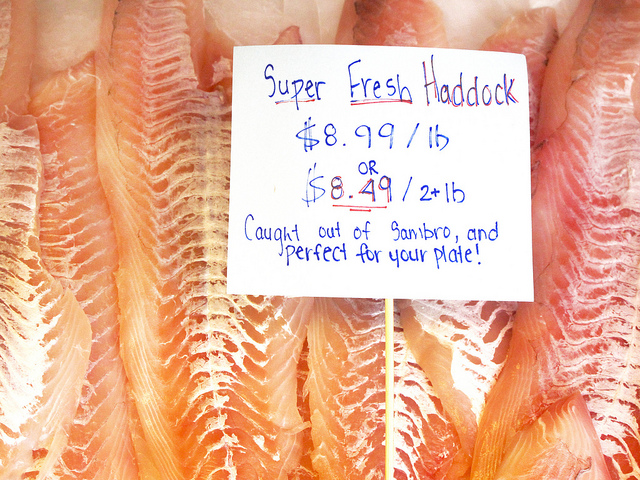 Super Fresh Haddock
$8.99/lb
OR
$8.49/2+lb
Caught out of Sambro, and
perfect for your plate!